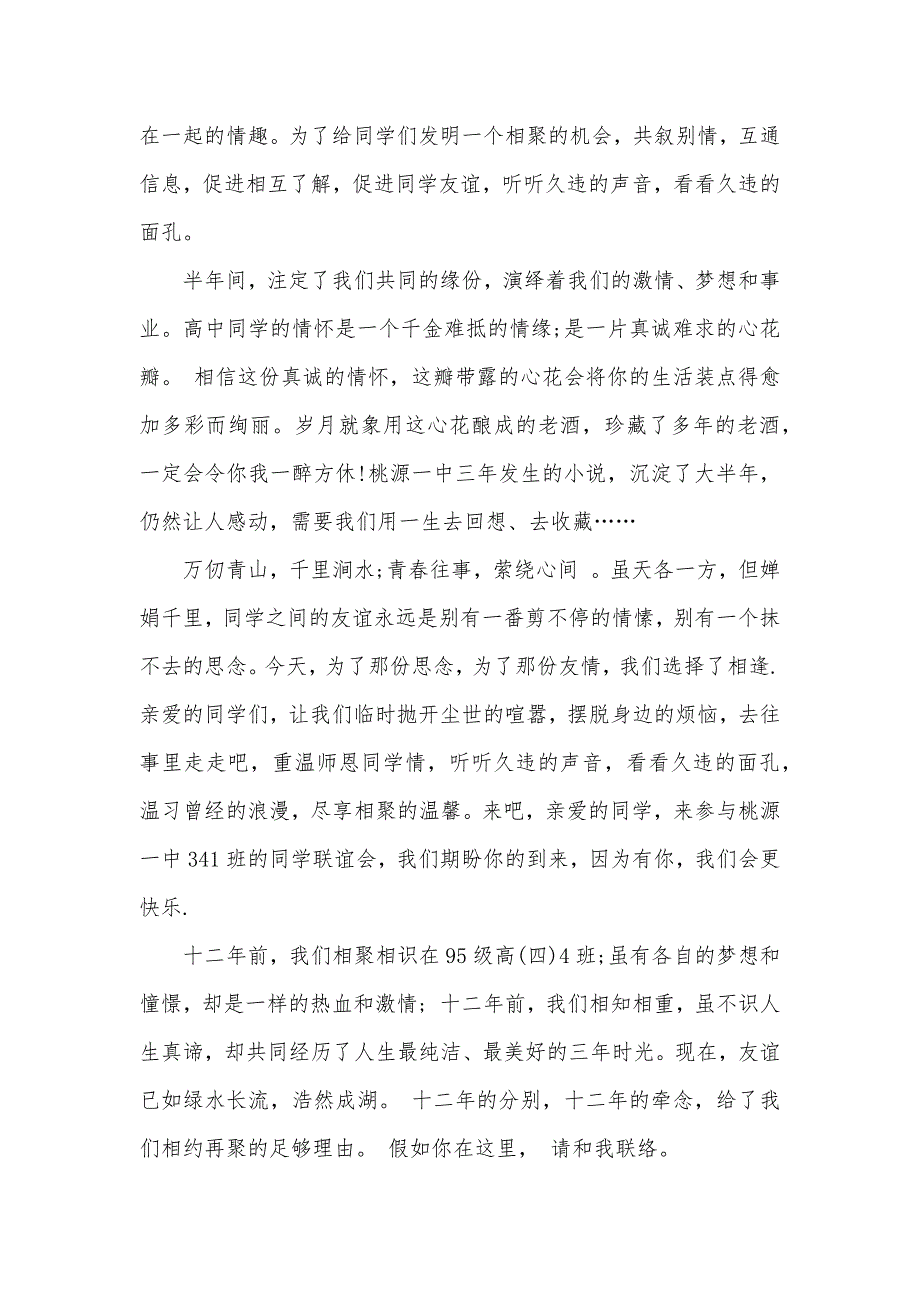 在一起的情趣。为了给同学们发明一个相聚的机会，共叙别情，互通
信息，促进相互了解，促进同学友谊，听听久违的声音，看看久违的
面孔。
半年间，注定了我们共同的缘份，演绎着我们的激情、梦想和事
业。高中同学的情怀是一个千金难抵的情缘;是一片真诚难求的心花
瓣。 相信这份真诚的情怀，这瓣带露的心花会将你的生活装点得愈
加多彩而绚丽。岁月就象用这心花酿成的老酒，珍藏了多年的老酒，
一定会令你我一醉方休!桃源一中三年发生的小说，沉淀了大半年，
仍然让人感动，需要我们用一生去回想、去收藏……
万仞青山，千里涧水;青春往事，萦绕心间 。虽天各一方，但婵
娟千里，同学之间的友谊永远是别有一番剪不停的情愫，别有一个抹
不去的思念。今天，为了那份思念，为了那份友情，我们选择了相逢.
亲爱的同学们，让我们临时抛开尘世的喧嚣，摆脱身边的烦恼，去往
事里走走吧，重温师恩同学情，听听久违的声音，看看久违的面孔，
温习曾经的浪漫，尽享相聚的温馨。来吧，亲爱的同学，来参与桃源
一中 341 班的同学联谊会，我们期盼你的到来，因为有你，我们会更
快乐.
十二年前，我们相聚相识在 95 级高(四)4 班;虽有各自的梦想和
憧憬，却是一样的热血和激情; 十二年前，我们相知相重，虽不识人
生真谛，却共同经历了人生最纯洁、最美好的三年时光。现在，友谊
已如绿水长流，浩然成湖。 十二年的分别，十二年的牵念，给了我
们相约再聚的足够理由。 假如你在这里， 请和我联络。